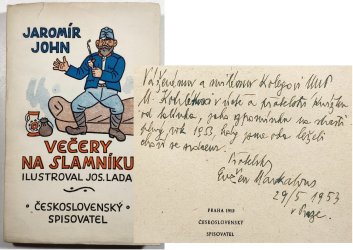 JAROMÍR
JOHN
VEČERY
NA SLAMNÍKU
ILUSTROVAL JOS. LADA
ČESKOSLOVENSKÝ
SPISOVATEL
Váženému a milému kolegovi MUDr
v úctě a přátelství knížku
jako upomínku na
rok 1953, kdy jsme oba leželi
Přátelsky
Evžen
29/5 1953
v Praze.
PRAHA 1953
ČESKOSLOVENSKÝ
SPISOVATEL